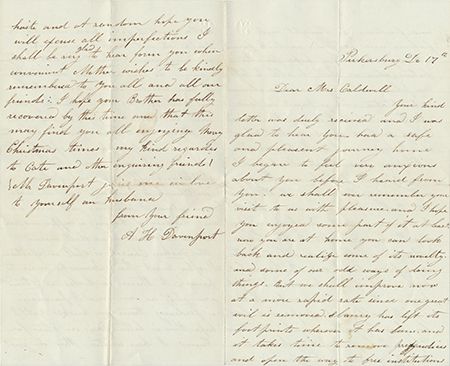 Parkersburg De 17th
Dear Mrs. Caldwell
Your kind
letter was duly received and I was
glad to hear you had a safe
and pleasant journey home
I began to feel very anxious
about you before I heard from
you. we shall remember your
visit to us with pleasure, and I hope
you enjoyed some part of it at least
now you are at home you can look
back and realize some of its
and some of our odd ways of doing
things. but we shall improve now
at a more rapid rate since one great
evil is removed. slavery has left its
foot prints wherever it has been and
it takes time to remove prejudices
and open the way to free institutions
haste and at random hope you
will excuse all imperfections I
shall be very glad to hear form you when
convenient Mother wishes to be kindly
remembered to you all and all our
friends. I hope your Brother has fully
recovered by this time and that this
may find you all enjoying
Christmas times my kind regards
to Cate and other inquiring friends!
Davenport joins me in love
to yourself an Husband
from your friend
A H Davenport